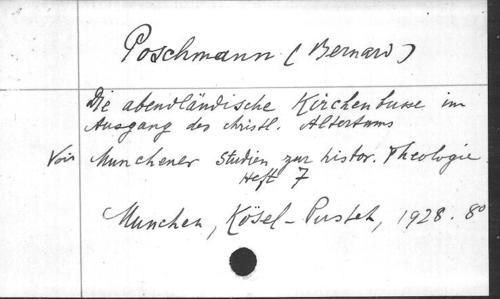 Poschmann (Bernard)
Die abendländische Kirchenbusse im
Ausgang des christl. Altertums
Voir Munchener Studien zur histor. Theologie
Heft 7
Munchen, Kösel-Pustet, 1928. 8º